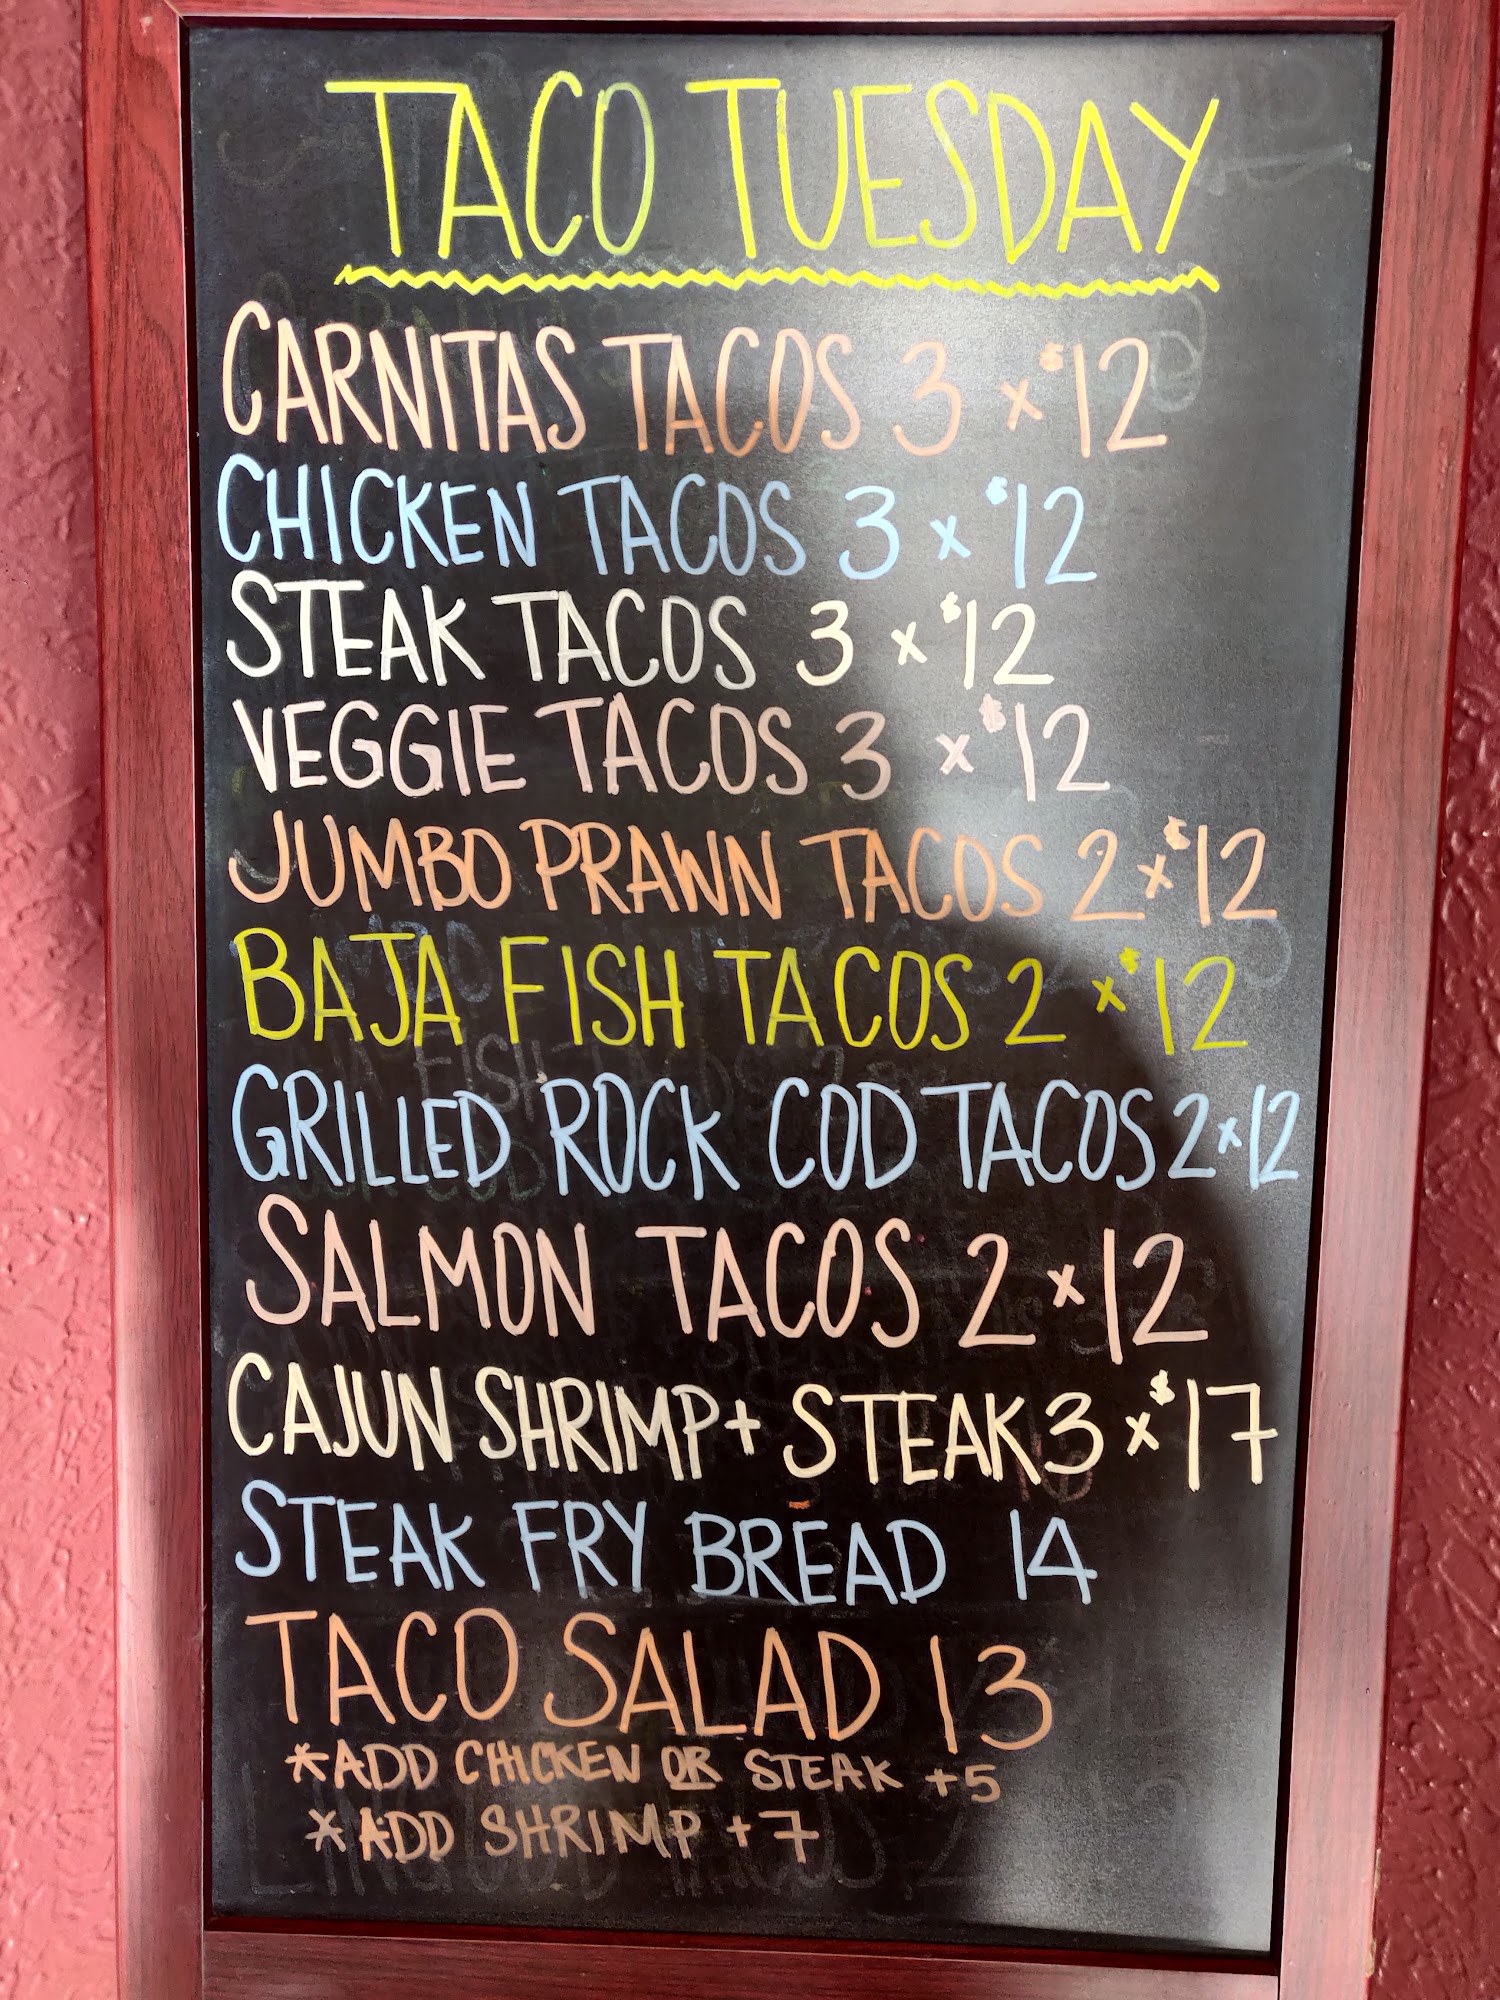 TACO TUESDAY
CARNITAS TACOS 3 x $12
CHICKEN TACOS 3 x $12
STEAK TACOS 3 x $12
VEGGIE TACOS 3 x $12
JUMBO PRAWN TACOS 2 x $12
BAJA FISH TACOS 2 x $12
GRILLED ROCK COD TACOS 2 x 12
SALMON TACOS 2 x 12
CAJUN SHRIMP + STEAK 3 x $17
STEAK FRY BREAD 14
TACO SALAD 13
*ADD CHICKEN OR STEAK +5
*ADD SHRIMP +7